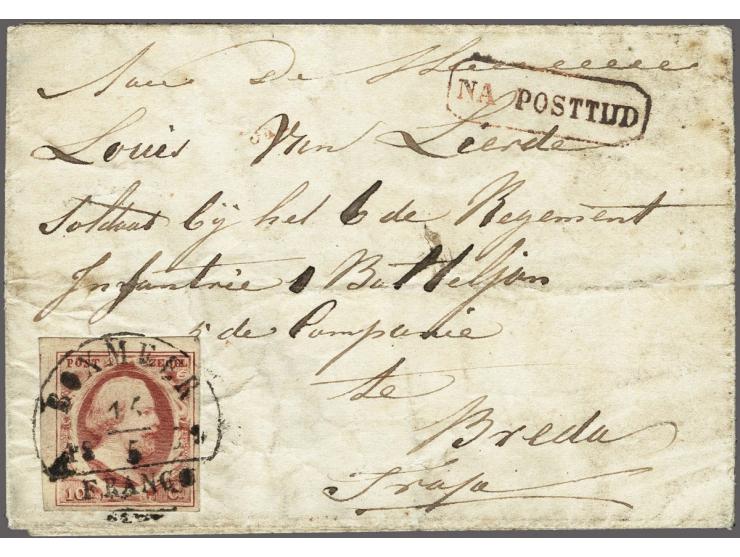 Aan De
NA POSTTIJD
Louis Van Lierde
Soldaat bij het 6 de Regement
Infantrie 1 Batteljon
5 de Companie
te
Breda
POST ZEGEL
BOXMEER
14
5
FRANCO
10